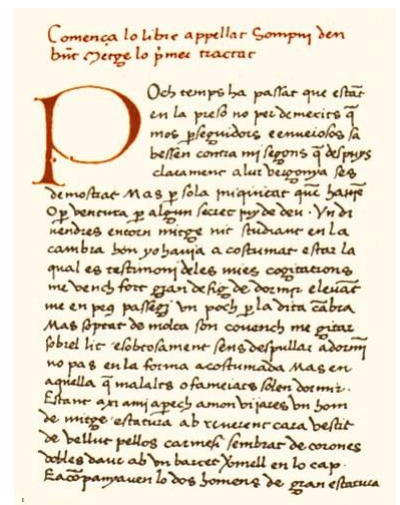 Comença lo libre appellat Sompnj den
bñt Metge lo p̄mer tractat
Poch temps ha passat que estãt
en la preso no per demerits q̄
mos p̱seguidors e enueiosos sa
bessen contra mi segons q̄ despuys
clarament a lur vergonya ses
demostrat Mas p̱ sola iniquitat que hauiẽ
O p̱ ventura p̱ algun secret iuy de deu . Vn di
uendres entorn mitge nit studiant en la
cambra hon yo hauia acostumat estar la
qual es testimoni deles mies cogitacions
me vench fort gran desig de dormir e leuãt
me en peu passegi vn poch p̱ la dita cãbra
Mas soptat de molta son couench me gitar
sobrel lit e sobtosament sens despullar adormĩ
no pas en la forma acostumada Mas en
aquella q̄ malalts o fameiats solen dormir .
Estant axi ami apech amon viiares vn hom
de mitge estatura ab reuerent cara vestit
de vellut pellos carmesi sembrat de corones
dobles daur ab vn barret v̄mell en lo cap .
E acõpanyauen lo dos homens de gran estatura